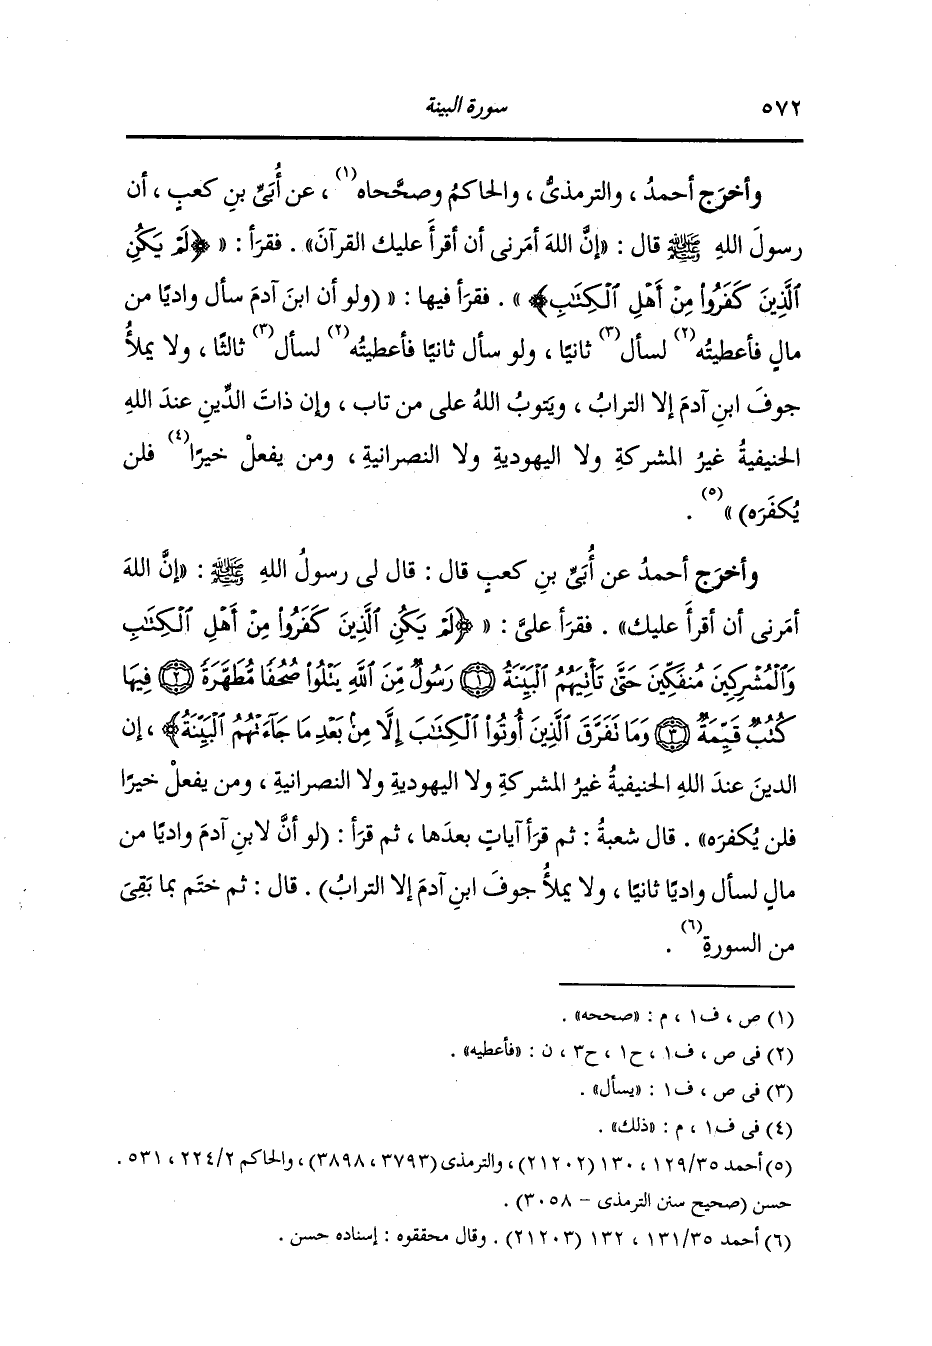 ٥٧٢ سورة البينة
وأخرَج أحمدُ ، والترمذىُّ ، والحاكمُ وصحَّحاه(١) ، عن أُبَىِّ بنِ كعبٍ ، أن
رسولَ اللهِ ﷺ قال : «إنَّ اللهَ أمَرنى أن أقرأَ عليك القرآنَ» . فقرَأ : « ﴿لَمْ يَكُنِ
ٱلَّذِينَ كَفَرُواْ مِنْ أَهْلِ ٱلْكِتَٰبِ﴾ » . فقرَأ فيها : « (ولو أن ابنَ آدمَ سأل واديًا من
مالٍ فأعطيتُه(٢) لسأل(٣) ثانيًا ، ولو سأل ثانيًا فأعطيتُه(٢) لسأل(٣) ثالثًا ، ولا يملأُ
جوفَ ابنِ آدمَ إلا الترابُ ، ويَتوبُ اللهُ على من تاب ، وإن ذاتَ الدِّينِ عندَ اللهِ
الحنيفيةُ غيرُ المشركةِ ولا اليهوديةِ ولا النصرانيةِ ، ومن يفعلْ خيرًا(٤) فلن
يُكفَرَه) »(٥) .
وأخرَج أحمدُ عن أُبَىِّ بنِ كعبٍ قال : قال لى رسولُ اللهِ ﷺ : «إنَّ اللهَ
أمَرنى أن أقرأَ عليك» . فقرَأ علىَّ : « ﴿لَمْ يَكُنِ ٱلَّذِينَ كَفَرُواْ مِنْ أَهْلِ ٱلْكِتَٰبِ
وَٱلْمُشْرِكِينَ مُنفَكِّينَ حَتَّىٰ تَأْتِيَهُمُ ٱلْبَيِّنَةُ ﴿١﴾ رَسُولٌ مِّنَ ٱللَّهِ يَتْلُواْ صُحُفًا مُّطَهَّرَةً ﴿٢﴾ فِيهَا
كُتُبٌ قَيِّمَةٌ ﴿٣﴾ وَمَا تَفَرَّقَ ٱلَّذِينَ أُوتُواْ ٱلْكِتَٰبَ إِلَّا مِنۢ بَعْدِ مَا جَآءَتْهُمُ ٱلْبَيِّنَةُ﴾ ، إن
الدينَ عندَ اللهِ الحنيفيةُ غيرُ المشركةِ ولا اليهوديةِ ولا النصرانيةِ ، ومن يفعلْ خيرًا
فلن يُكفرَه» . قال شعبةُ : ثم قرَأ آياتٍ بعدَها ، ثم قرَأ : (لو أنَّ لابنِ آدمَ واديًا من
مالٍ لسأل واديًا ثانيًا ، ولا يملأُ جوفَ ابنِ آدمَ إلا الترابُ) . قال : ثم ختَم بما بَقِىَ
من السورةِ(٦) .
(١) ص ، ف١ ، م : «صححه» .
(٢) فى ص ، ف١ ، ح١ ، ح٣ ، ن : «فأعطيه» .
(٣) فى ص ، ف١ : «يسأل» .
(٤) فى ف١ ، م : «ذلك» .
(٥) أحمد ١٢٩/٣٥ ، ١٣٠ (٢١٢٠٢) ، والترمذى (٣٧٩٣ ، ٣٨٩٨) ، والحاكم ٢٢٤/٢ ، ٥٣١ .
حسن (صحيح سنن الترمذى - ٣٠٥٨) .
(٦) أحمد ١٣١/٣٥ ، ١٣٢ (٢١٢٠٣) . وقال محققوه : إسناده حسن .